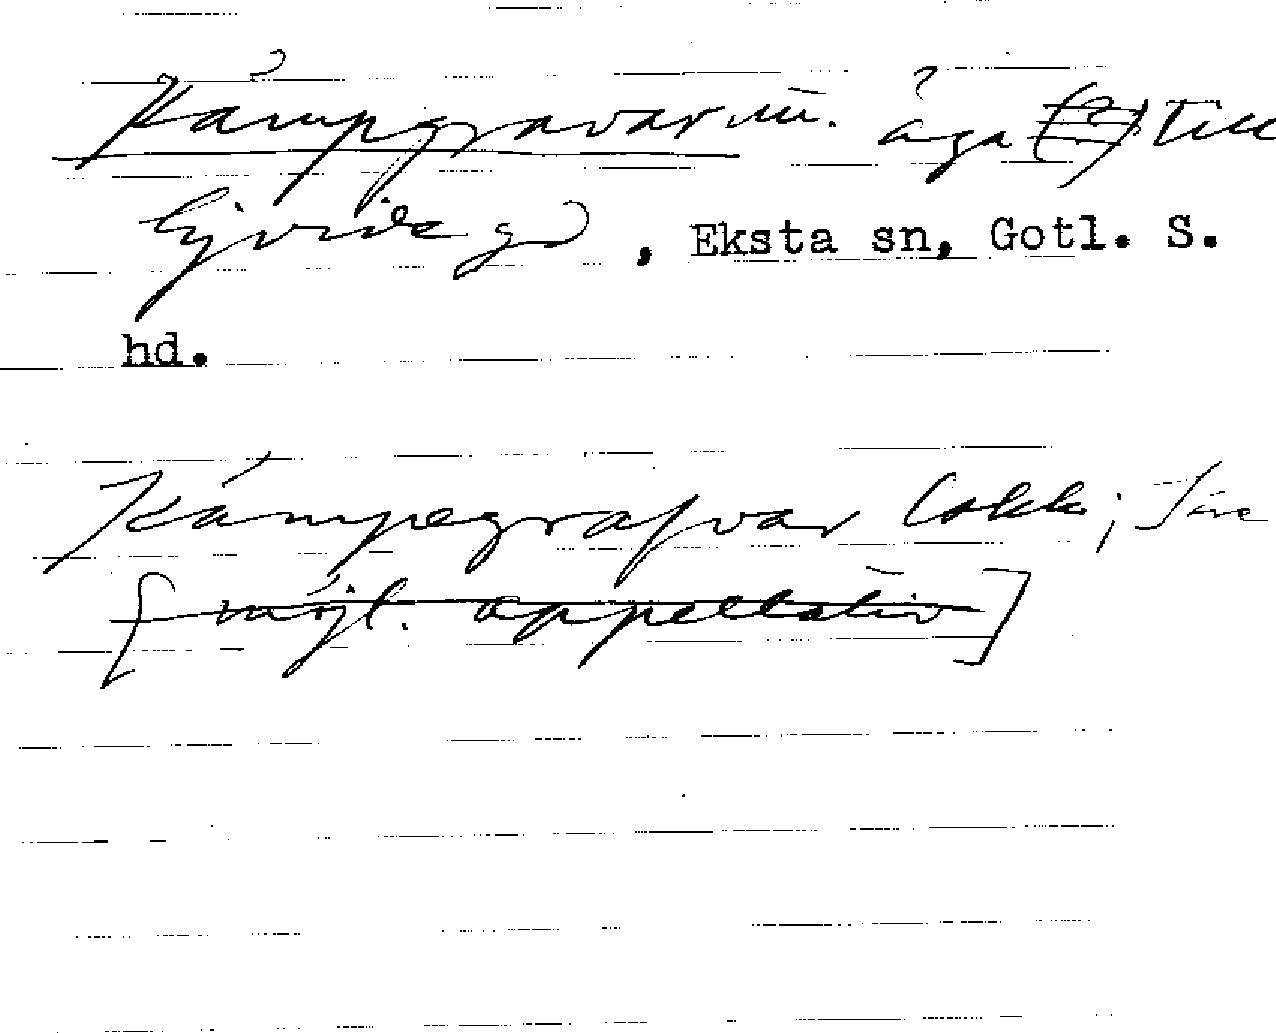 Kämpgravar, nu. åga (?) till
Ejvide gd, Eksta sn, Gotl. S.
hd.
Kämpegrafvar Lokk; Säve
[möjl. appellativ]